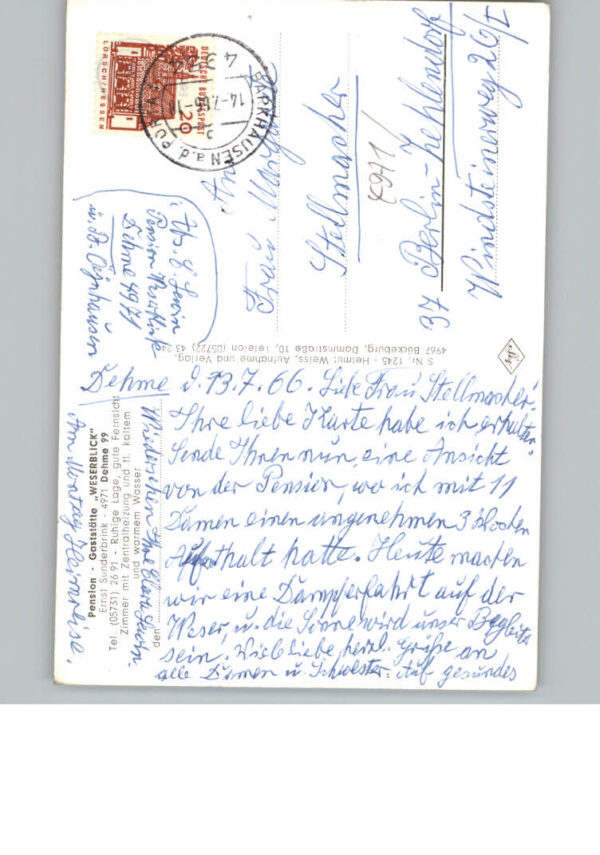 Pension - Gaststätte „WESERBLICK"
Ernst Sunderbrink - 4971 Dehme 99
Tel. (05731) 26 91 - Ruhige Lage, gute Fernsicht
Zimmer mit Zentralheizung und fl. kaltem
und warmem Wasser
den
Dehme d. 13.7.66. Liebe Frau Stellmacher!
Ihre liebe Karte habe ich erhalten.
Sende Ihnen nun, eine Ansicht
von der Pension, wo ich mit 11
Damen einen angenehmen 3 Wochen
Aufenthalt hatte. Heute machen
wir eine Dampferfahrt auf der
Weser, u. die Sonne wird unser Begleiter
sein. Viele liebe herzl. Grüße an
alle Damen u. Schwester. Auf gesundes
Wiedersehen Ihre Clara
Am Montag Heimreise.
S Nr. 1245 - Helmut Weiss, Aufnahme und Verlag,
4967 Bückeburg, Dammstraße 10, Telefon (05722) 43 24
Abs. C.
Pension Weserblick
Dehme 4971
ü. Bd. Oeynhausen
DEUTSCHE BUNDESPOST
20
LORSCH/HESSEN
BARKHAUSEN a.d. PORTA
14.-7.66
An
Frau
Stellmacher
4971
37 Berlin-Zehlendorf
Windsteinerweg 26/I